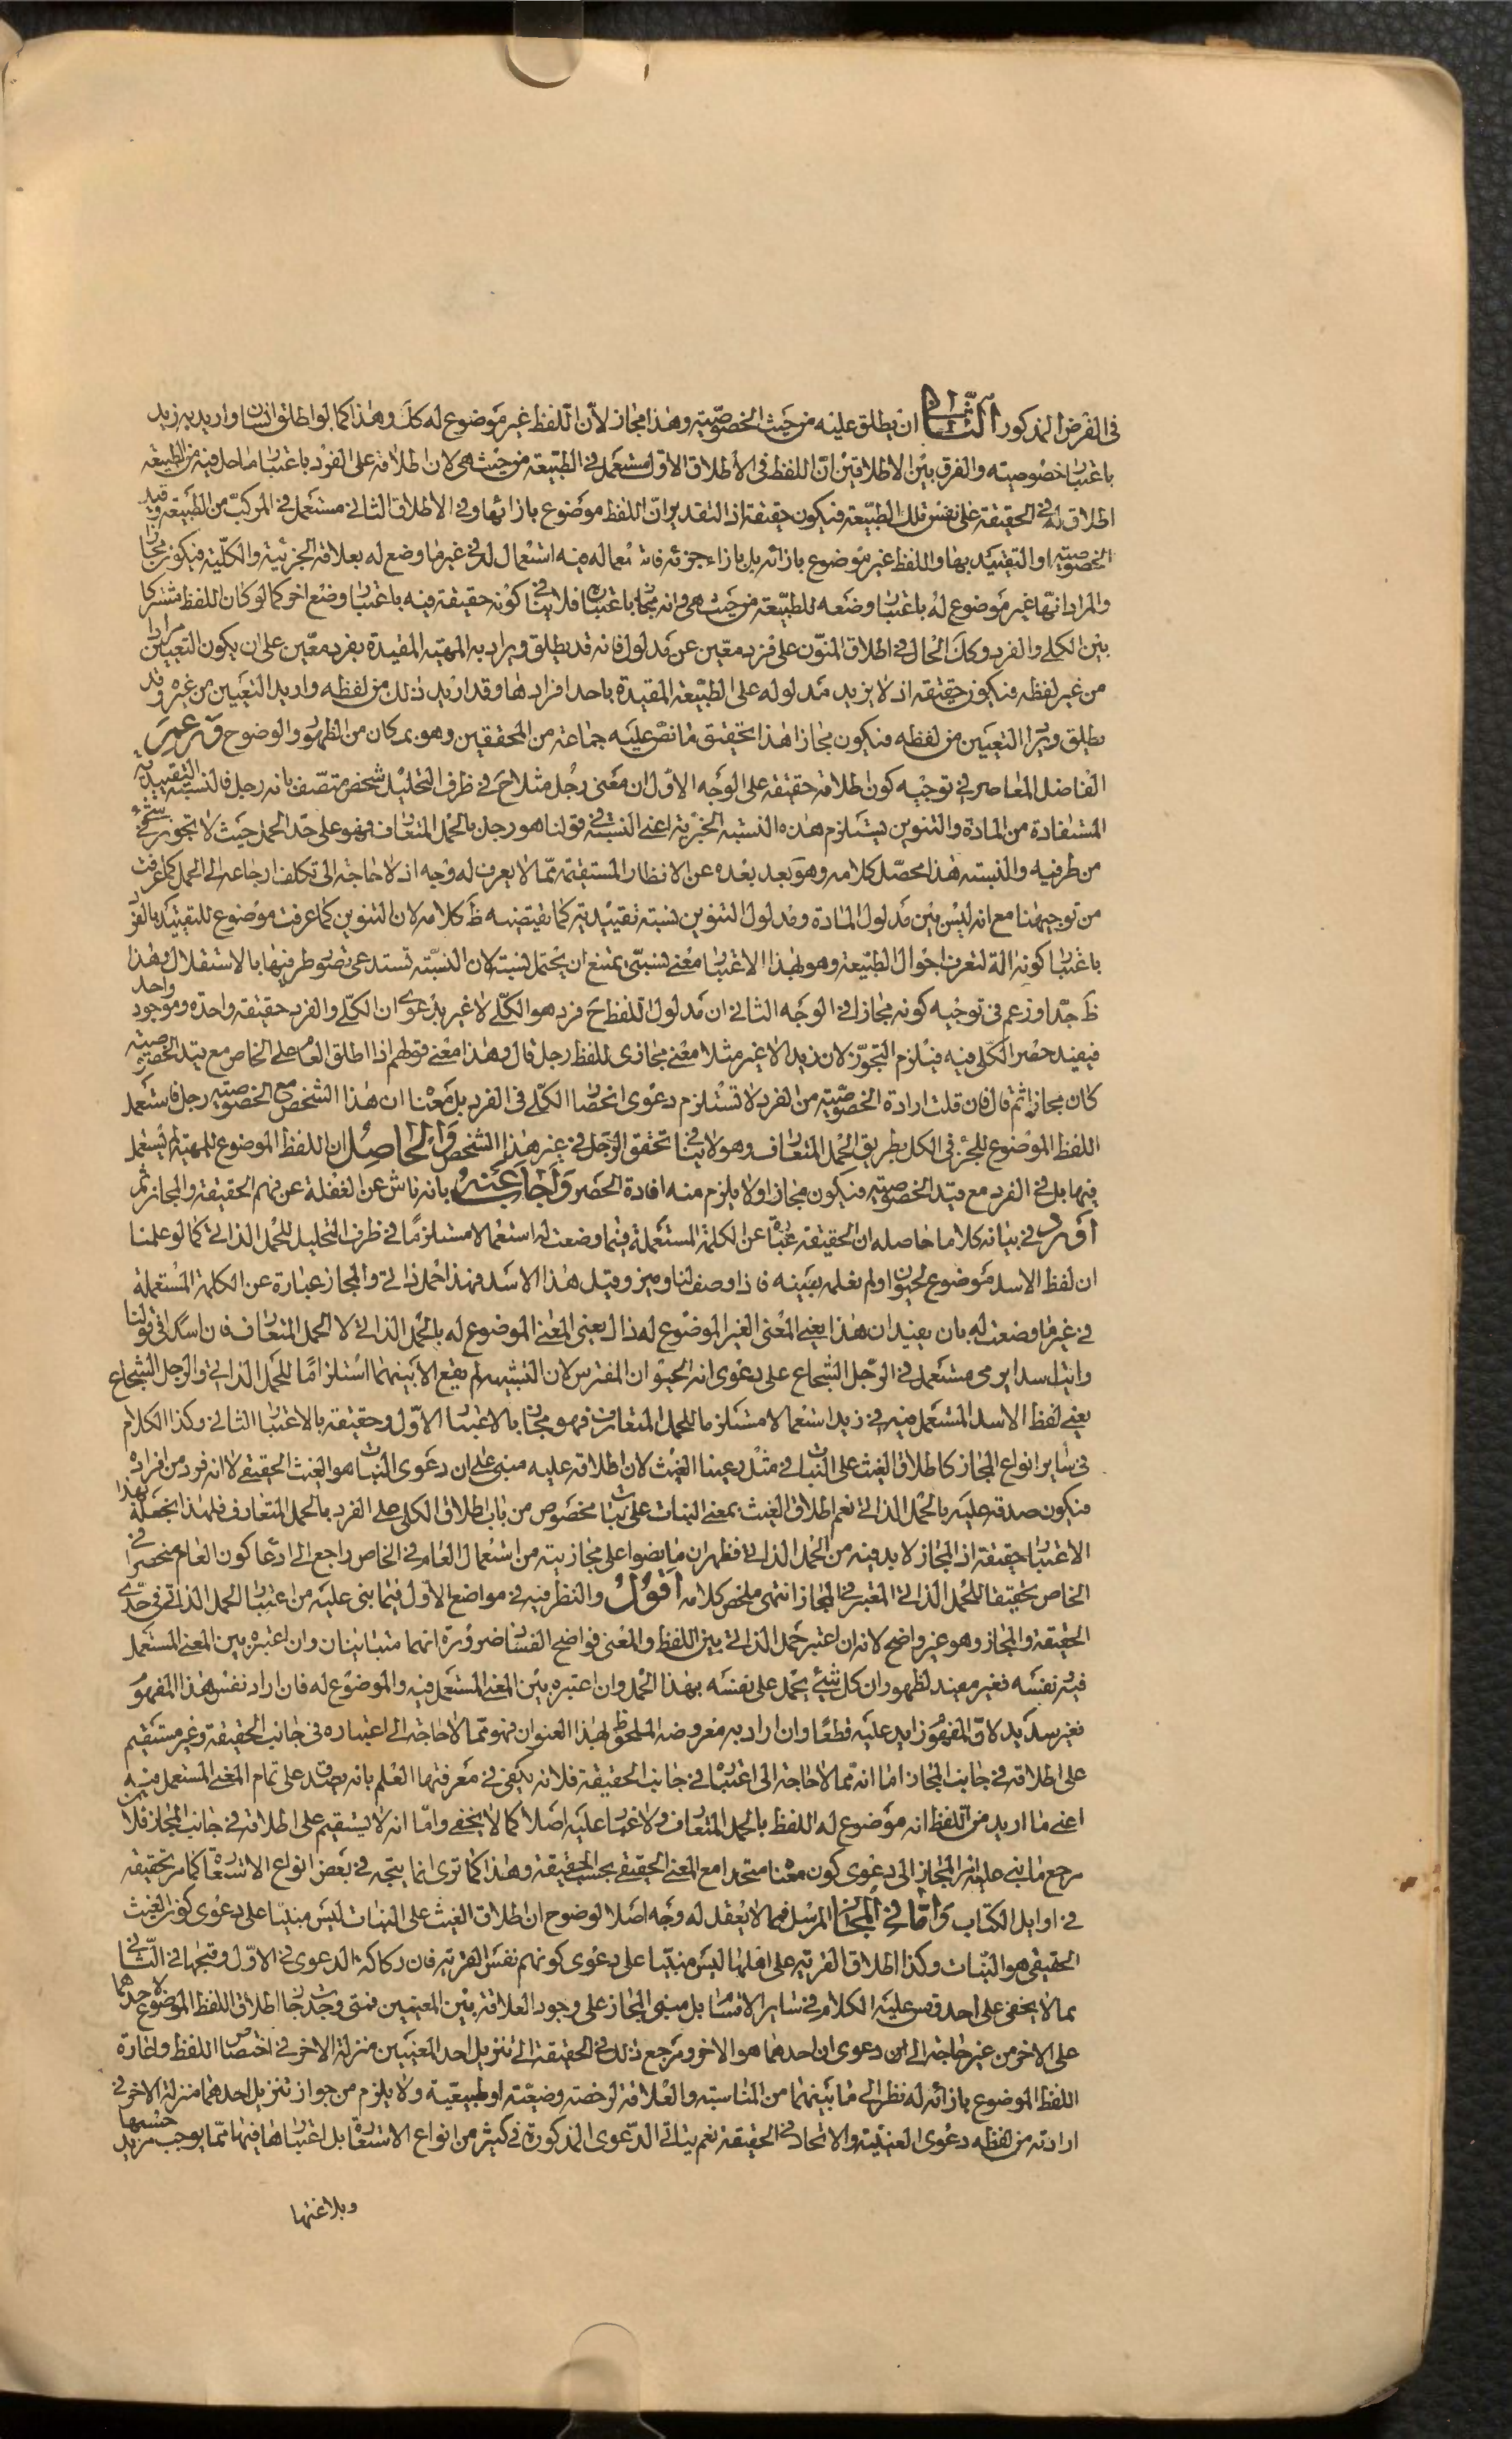 في الفرض المذكور الثاني ان يطلق عليه من حيث الخصوصية وهذا مجاز لأن اللفظ غير موضوع له كك وهذا كما لو اطلق انسان واريد به زيد
باعتبار خصوصيته والفرق بين الاطلاقين ان اللفظ في الاطلاق الاول مستعمل في الطبيعة من حيث هي لان اطلاقه على الفرد باعتبار ما حل فيه من الطبيعة
اطلاق له في الحقيقة على نفس تلك الطبيعة فيكون حقيقة اذ التقدير ان اللفظ موضوع بازائها وفي الاطلاق الثاني مستعمل في المركب من الطبيعة وقيد
الخصوصية او التقييد بها واللفظ غير موضوع بازائه بل بازاء جزئه فاستعماله فيه استعمال له في غير ما وضع له بعلاقة الجزئية والكلية فيكون مجازا
والمراد انها غير موضوع له باعتبار وضعه للطبيعة من حيث هي وانه مجاز باعتباره فلا ينافي كونه حقيقة فيه باعتبار وضع اخر كما لو كان اللفظ مشتركا
بين الكلي والفرد وكك الحال في اطلاق المنون على فرد معين عن مدلول فانه قد يطلق ويراد به المهية المقيدة بفرد معين على ان يكون التعيين مرادا
من غير لفظه فيكون حقيقة اذ لا يزيد مدلوله على الطبيعة المقيدة باحد افرادها وقد اريد ذلك من لفظه واريد التعيين من غيره وقد
يطلق ويراد التعيين من لفظه فيكون مجازا هذا تحقيق ما نص عليه جماعة من المحققين وهو بمكان من الظهور والوضوح وزعم
الفاضل المعاصر في توجيه كون اطلاقه حقيقة على الوجه الاول ان معنى رجل مثلا ح في ظرف التحليل شخص متصف بانه رجل فالنسبة التقييدية
المستفادة من المادة والتنوين يستلزم هذه النسبة الخبرية اعني النسبة في قولنا هو رجل بالحمل المتعارف وهو على حد الحمل حيث لا تجوز في شيء
من طرفيه والنسبة هذا محصل كلامه وهو بعد بعده عن الانظار المستقيمة مما لا يعرف له وجه اذ لا حاجة الى تكلف ارجاعه الى الحمل كما عرفت
من توجيهنا مع انه ليس بين مدلول المادة ومدلول التنوين نسبة تقييدية كما يقتضيه ظ كلامه لان التنوين كما عرفت موضوع للتقييد بالفرد
باعتبار كونه الة لتعرف احوال الطبيعة وهو بهذا الاعتبار معنى نسبتي يمتنع ان يحتمل نسبة لان النسبة تستدعي تصور طرفيها بالاستقلال وهذا
ظ جدا وزعم في توجيه كونه مجازا في الوجه الثاني ان مدلول اللفظ ح فرد هو الكلي لا غير بدعوى ان الكلي والفرد حقيقة واحدة وموجود واحد
فيفيد حصر الكلي فيه فيلزم التجوز لان زيد لا غير مثلا معنى مجازى للفظ رجل قال وهذا معنى قولهم اذا اطلق العام على الخاص مع قيد الخصوصية
كان مجازا ثم قال فان قلت ارادة الخصوصية من الفرد لا تستلزم دعوى انحصار الكلي في الفرد بل معناه ان هذا الشخص مع الخصوصية رجل فاستعمل
اللفظ الموضوع للجزء في الكل بطريق الحمل المتعارف وهو لا ينافي تحقق الرجل في غير هذا الشخص والحاصل ان اللفظ الموضوع للمهية لم يستعمل
فيها بل في الفرد مع قيد الخصوصية فيكون مجازا ولا يلزم منه افادة الحصر واجاب عنه بانه ناش عن الغفلة عن فهم الحقيقة والمجاز ثم
اورد في بيانه كلاما حاصله ان الحقيقة عبارة عن الكلمة المستعملة فيما وضعت له استعمالا مستلزما في ظرف التحليل للحمل الذاتي كما لو علمنا
ان لفظ الاسد موضوع لحيوان ولم نعلمه بعينه فاذا وصف لنا وميز وقيل هذا الاسد فهذا حمل ذاتي والمجاز عبارة عن الكلمة المستعملة
في غير ما وضعت له بان يفيد ان هذا يعني المعنى الغير الموضوع له ذاك يعني المعنى الموضوع له بالحمل الذاتي لا الحمل المتعارف فان اسدا في قولنا
رايت اسدا يرمي مستعمل في الرجل الشجاع على دعوى انه الحيوان المفترس لان التشبيه لم يقع الا بينهما استلزاما للحمل الذاتي والرجل الشجاع
يعني لفظ الاسد المستعمل فيه في زيد استعمالا مستلزما للحمل المتعارف فهو مجاز بالاعتبار الاول وحقيقة بالاعتبار الثاني وكذا الكلام
في ساير انواع المجاز كاطلاق الغيث على النبات في مثل رعينا الغيث لان اطلاقه عليه مبني على ان دعوى النبات هو الغيث الحقيقي لا انه فرد من افراده
فيكون صدقه عليه بالحمل الذاتي نعم اطلاق الغيث بمعنى النبات على نبات مخصوص من باب اطلاق الكلي على الفرد بالحمل المتعارف فلهذا نجعله بهذا
الاعتبار حقيقة اذ المجاز لا بد فيه من الحمل الذاتي فظهر ان ما نصوا على مجازيته من استعمال العام في الخاص راجع الى ادعاء كون العام منحصرا في
الخاص تحقيقا للحمل الذاتي المعتبر في المجاز انتهى ملخص كلامه اقول والنظر فيه في مواضع الاول فيما بنى عليه من اعتبار الحمل الذاتي في حدى
الحقيقة والمجاز وهو غير واضح لانه ان اعتبر حمل الذاتي بين اللفظ والمعنى فواضح الفساد ضرورة انهما متباينان وان اعتبره بين المعنى المستعمل
فيه ونفسه فغير مفيد لظهور ان كل شيء يحمل على نفسه بهذا الحمل وان اعتبره بين المعنى المستعمل فيه والموضوع له فان اراد نفس هذا المفهوم
فغير سديد لان المفهوم زايد عليه قطعا وان اراد به معروضه الملحوظ بهذا العنوان فهو مما لا حاجة الى اعتباره في جانب الحقيقة وغير مستقيم
على اطلاقه في جانب المجاز اما انه مما لا حاجة الى اعتباره في جانب الحقيقة فلانه يكفي في معرفتها العلم بانه يصدق على تمام المعنى المستعمل فيه
اعني ما اريد من اللفظ انه موضوع له اللفظ بالحمل المتعارف ولا غبار عليه اصلا كما لا يخفى واما انه لا يستقيم على اطلاقه في جانب المجاز فلان
مرجع ما بنى عليه امر المجاز الى دعوى كون معناه متحدا مع المعنى الحقيقي بحسب الحقيقة وهذا كما ترى انما يتجه في بعض انواع الاستعارة كما مر تحقيقه
في اوايل الكتاب واما في المجاز المرسل فمما لا يعقل له وجه اصلا لوضوح ان اطلاق الغيث على النبات ليس مبنيا على دعوى كون الغيث
الحقيقي هو النبات وكذا اطلاق القرية على اهلها ليس مبنيا على دعوى كونهم نفس القرية فان ركاكة الدعوى في الاول وقبحها في الثاني
مما لا يخفى على احد وقس عليه الكلام في ساير الاقسام بل مبنى المجاز على وجود العلاقة بين المعنيين فمتى وجدت جاز اطلاق اللفظ الموضوع لاحدهما
على الاخر من غير حاجة الى دعوى ان احدهما هو الاخر ومرجع ذلك في الحقيقة الى تنزيل احد المعنيين منزلة الاخر في اختصاص اللفظ واعارة
اللفظ الموضوع بازائه له نظرا الى ما بينهما من المناسبة والعلاقة لرخصة وضعية او طبيعية ولا يلزم من جواز تنزيل احدهما منزلة الاخر في
ارادته من لفظه دعوى العينية والاتحاد في الحقيقة نعم يتاتى الدعوى المذكورة في كثير من انواع الاستعارة بل اعتبارها فيها مما يوجب مزيد حسنها
وبلاغتها